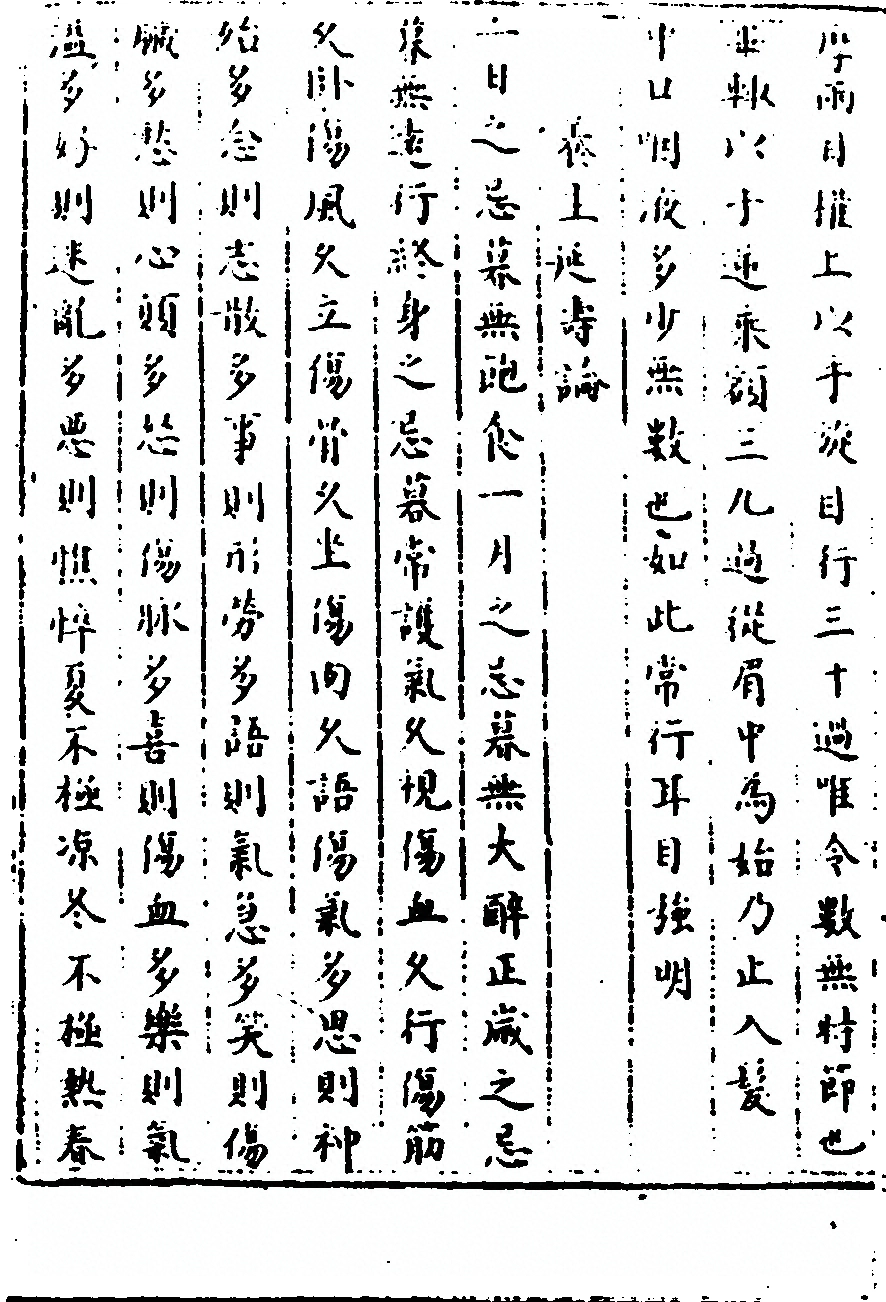 摩兩目權上以手旋目行三十過唯令數無時節也
畢輙以手逆乘額三九過從眉中為始乃止入髮
中口咽液多少無數也如此常行耳目強明
養上延壽論
一日之忌暮無飽食一月之忌暮無大醉正歲之忌
暮無遠行終身之忌暮常護氣久視傷血久行傷筋
久卧傷風久立傷骨久坐傷肉久語傷氣多思則神
殆多念則志散多事則形勞多語則氣急多笑則傷
臟多愁則心頭多怒則傷脉多喜則傷血多樂則氣
溢多好則迷亂多惡則憔悴夏不極凉冬不極熱春